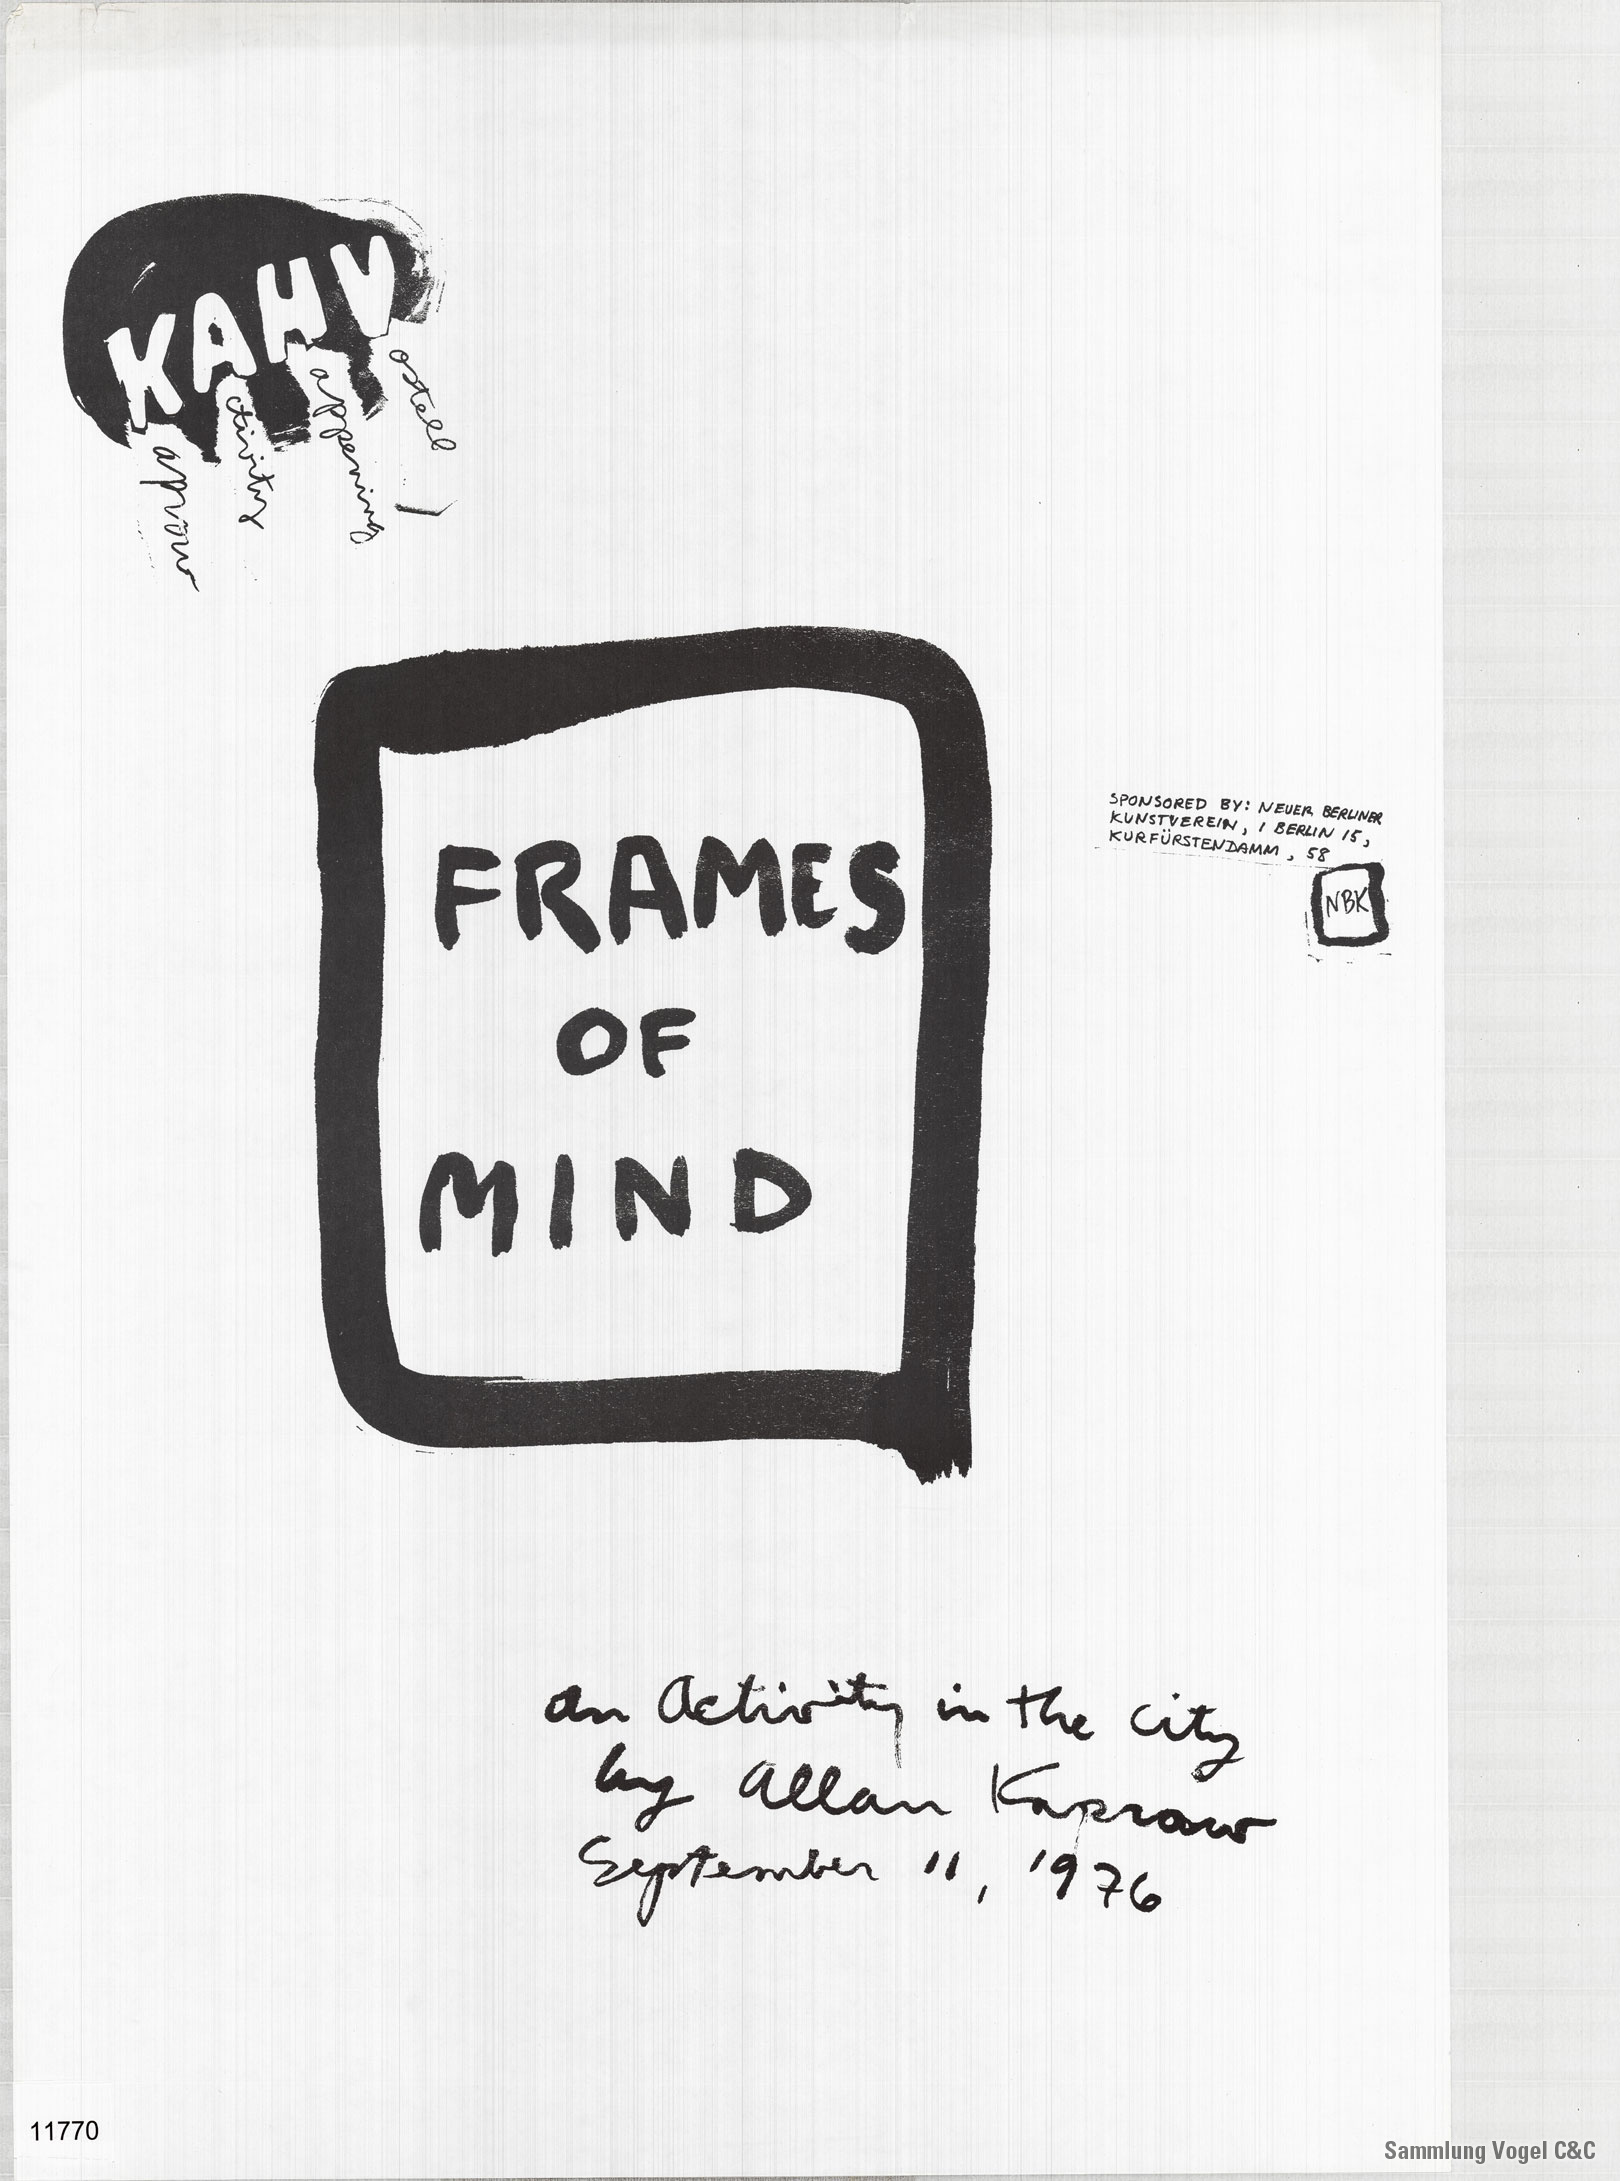 KAHV
aprow
ctivity
appening
ostell
FRAMES
OF
MIND
SPONSORED BY: NEUER BERLINER
KUNSTVEREIN, 1 BERLIN 15,
KURFÜRSTENDAMM, 58
NBK
an Activity in the city
by Allan Kaprow
September 11, 1976
11770
Sammlung Vogel C&C